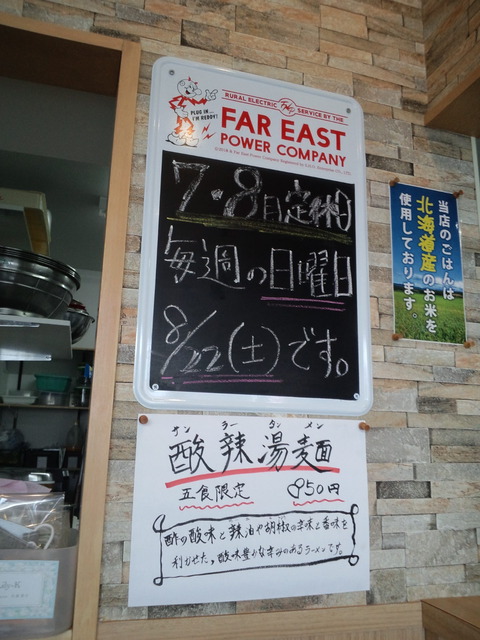 PLUG IN...
I'M REDDY!
RURAL ELECTRIC SERVICE BY THE
FAR EAST
POWER COMPANY
7・8月定休日
毎週の日曜日
8/22(土)です。
当店のごはんは
北海道産のお米を
使用しております。
サン ラー タン メン
酸辣湯麺
五食限定 850円
酢の酸味と辣油や胡椒の辛味と香味を
利かせた,酸味豊かな辛みのあるラーメンです。